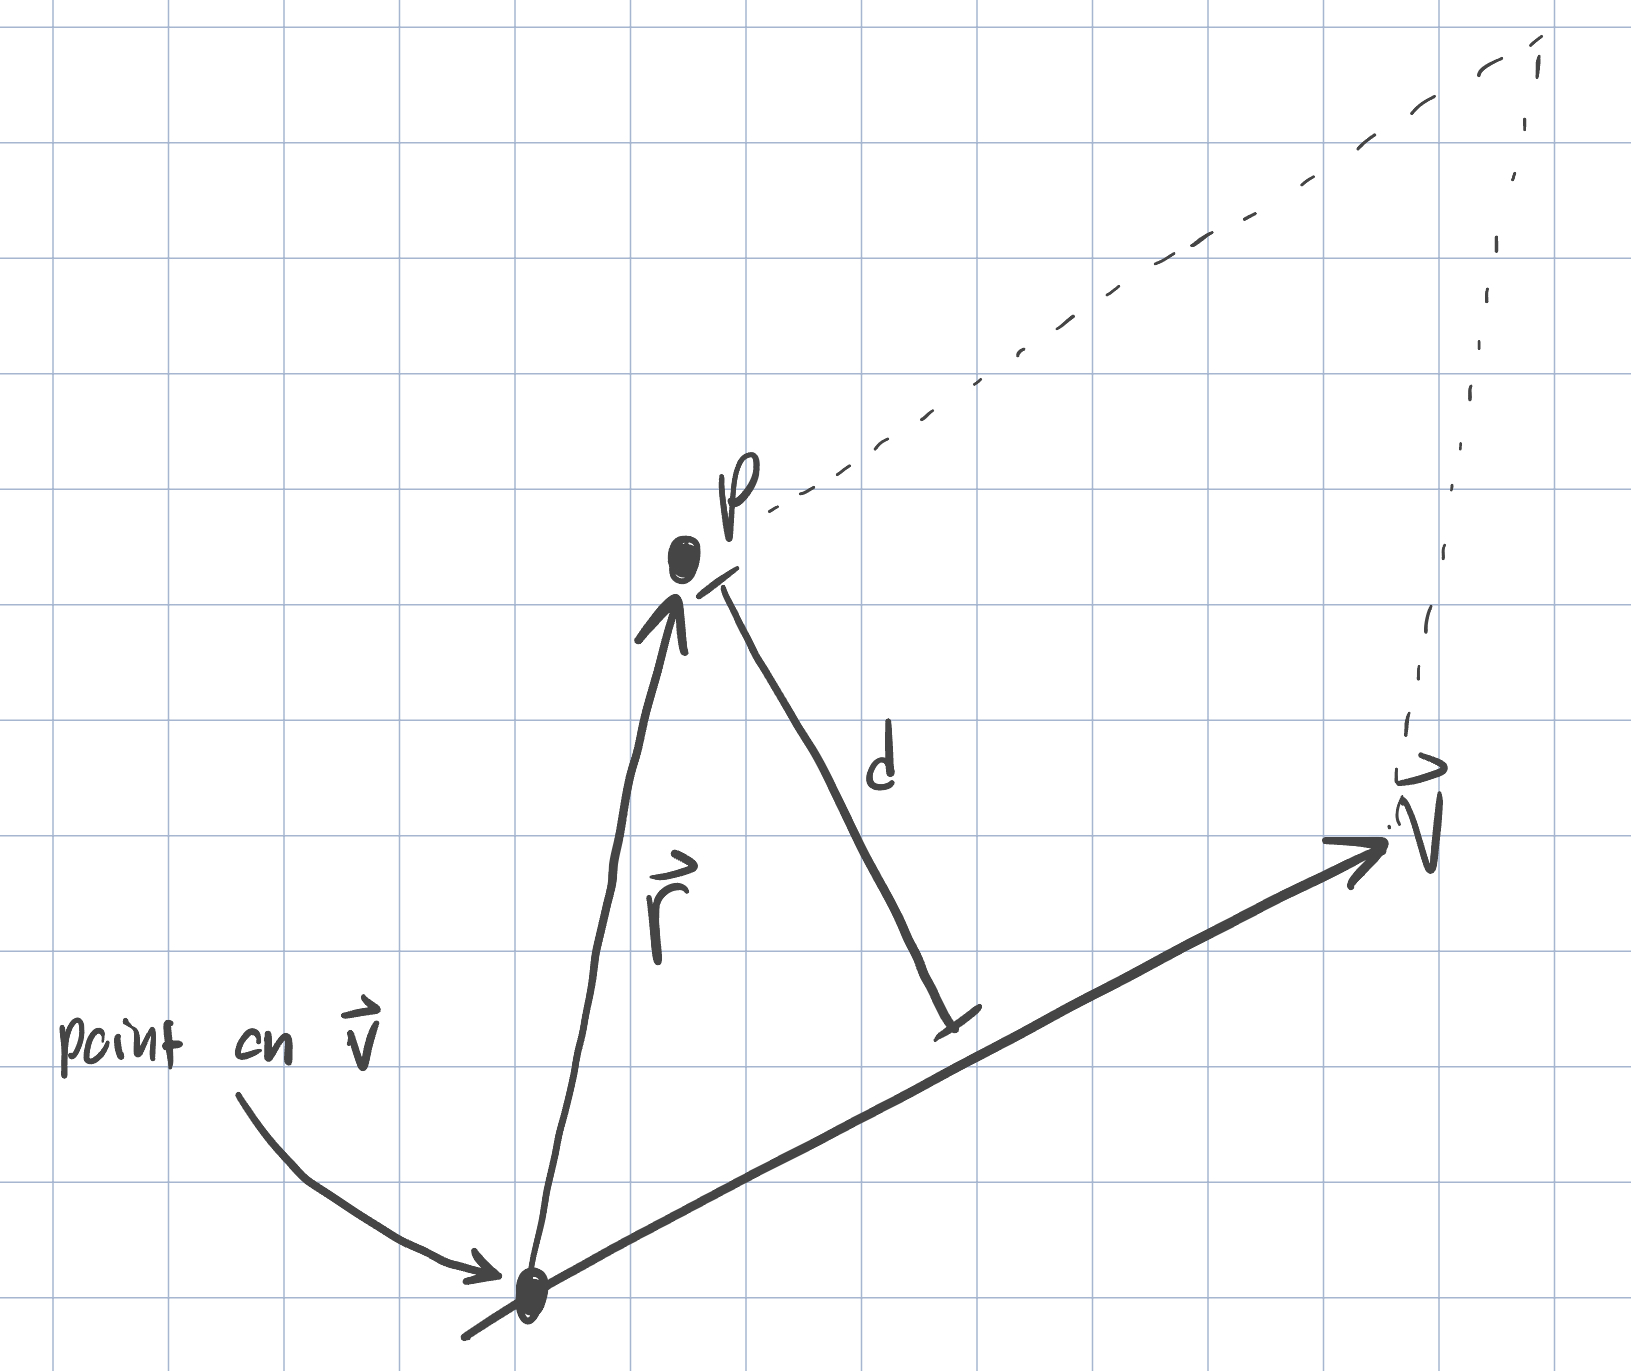 p
d
v⃗
r⃗
point on v⃗